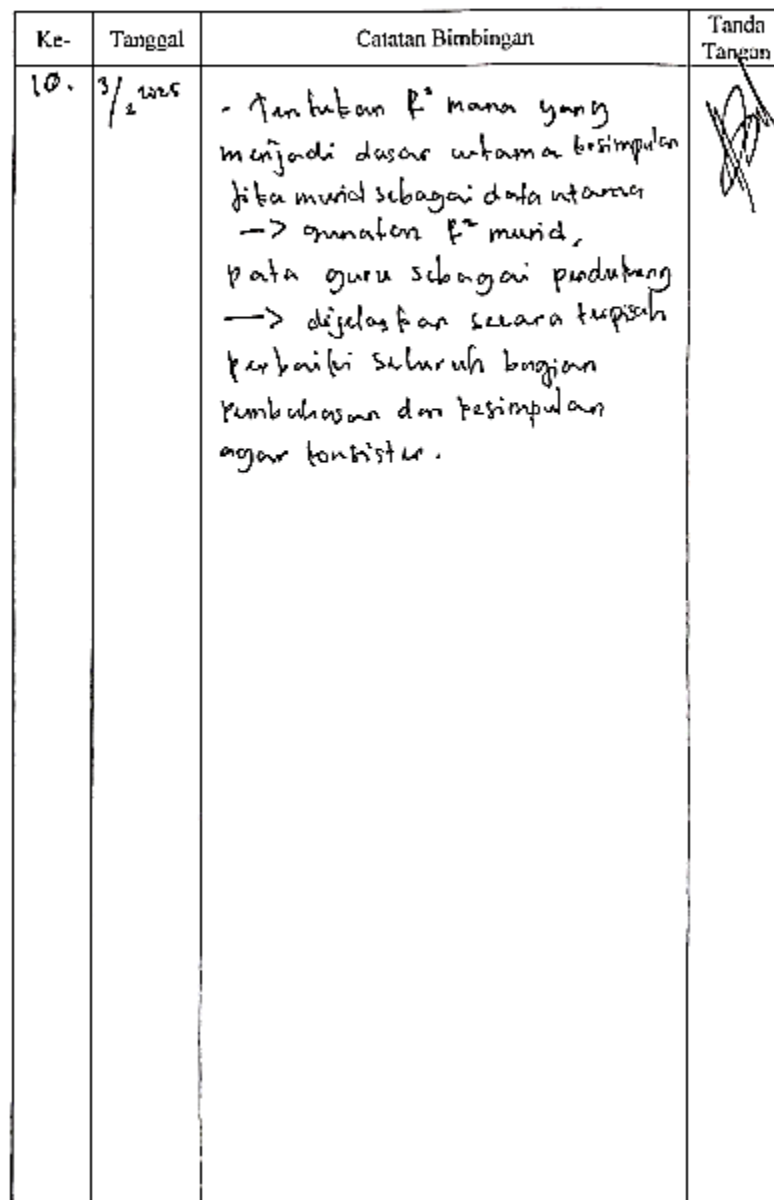 Ke-
Tanggal
Catatan Bimbingan
Tanda
Tangan
10.
3/2 2025
- Tentukan R² mana yang
menjadi dasar utama kesimpulan
Jika murid sebagai data utama
—> gunakan R² murid,
Data guru sebagai pendukung
—> dijelaskan secara terpisah
perbaiki seluruh bagian
pembahasan dan kesimpulan
agar konsisten.